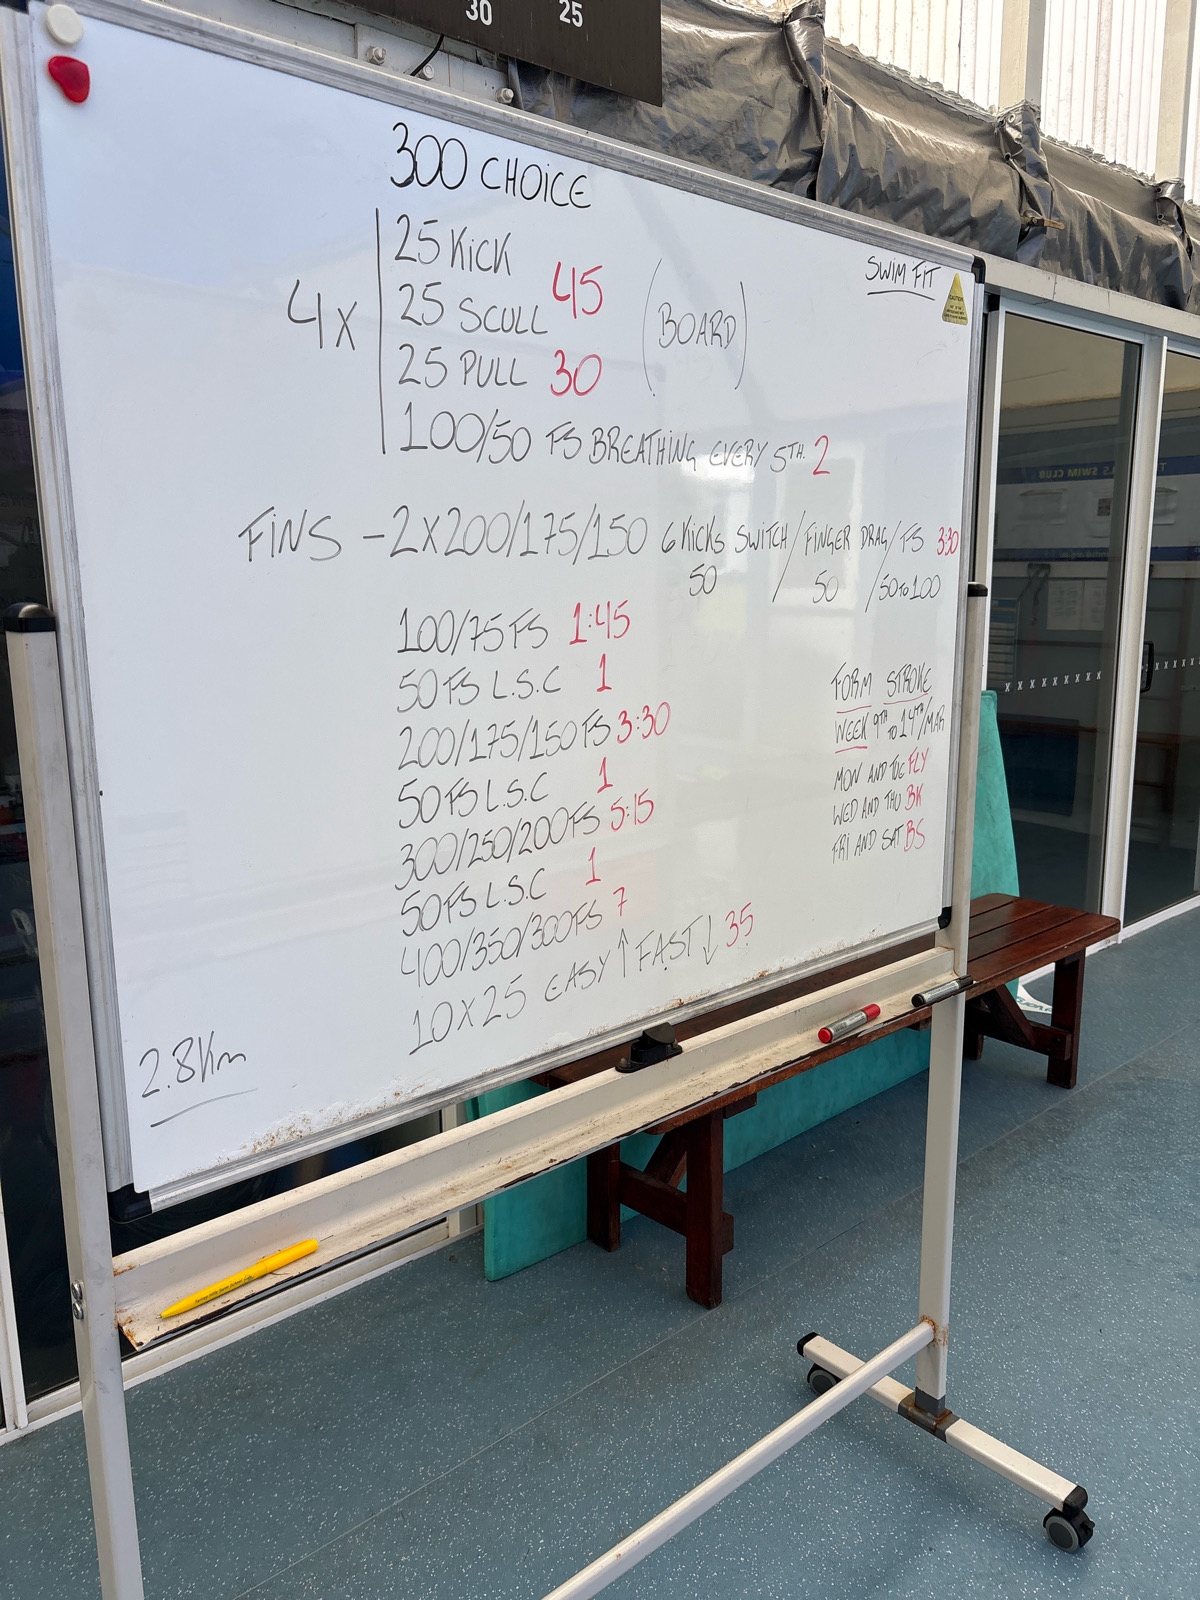 30 25
300 CHOICE
4X
25 KICK
25 SCULL 45
25 PULL 30
(BOARD)
100/50 FS BREATHING EVERY 5TH. 2
SWIM FIT
CAUTION
FINS - 2X200/175/150 6 KICKS SWITCH / FINGER DRAG / FS 3:30
50 / 50 / 50 TO 100
100/75 FS 1:45
50 FS L.S.C 1
200/175/150 FS 3:30
50 FS L.S.C 1
300/250/200 FS 5:15
50 FS L.S.C 1
400/350/300 FS 7
10 X 25 EASY ↑ FAST ↓ 35
FORM STROKE
WEEK 9TH TO 14TH/MAR
MON AND TUE FLY
WED AND THU BK
FRI AND SAT BS
2.8Km
SWIM CLUB